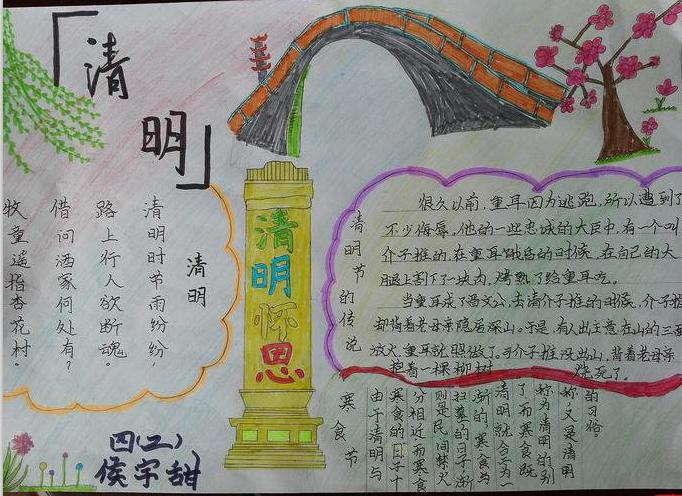 「清明」
清明
清明时节雨纷纷,
路上行人欲断魂。
借问酒家何处有?
牧童遥指杏花村.
清明怀思
清明节的传说
很久以前,重耳因为逃跑,所以遭到了
不少侮辱,他的一些忠诚的大臣中,有一个叫
介子推的,在重耳饿昏的时候,在自己的大
腿上割下了一块肉,烤熟了给重耳吃。
当重耳成了晋文公,去请介子推的时候,介子推
却背着老母亲隐居深山。于是,有人出主意在山的三面
放火,重耳就照做了。介子推没出山,背着老母亲
抱着一棵柳树 烧死了.
寒食节
由于清明与
寒食的日子十
分相近,而寒食
则是民间禁火
扫墓的日子,渐
渐的,寒食与
清明就合二为一
了,而寒食既
称为清明的别
称,又是清明
的习俗。
四(二)
侯宇甜